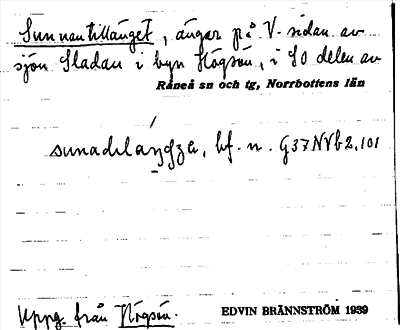 Sunnantillänget, ängar på V-sidan av
sjön Sladan i byn Högsön, i SO delen av
Råneå sn och tg, Norrbottens län
bf. n. G37NVb2,101
Uppg. från Högsön.
EDVIN BRÄNNSTRÖM 1939